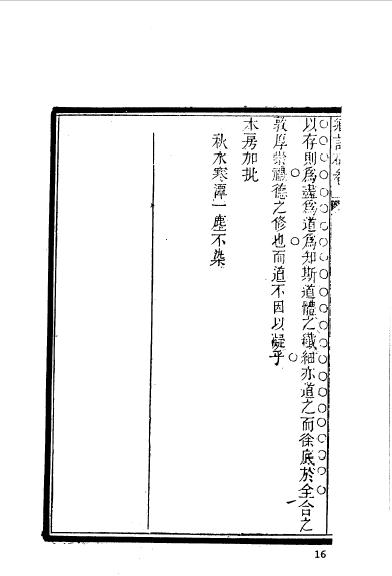 以存則爲盡爲道爲知斯道體之纖細亦道之而徐底於全合之
敦厚崇禮德之修也而道不因以凝乎
本房加批
秋水寒潭一塵不染
16